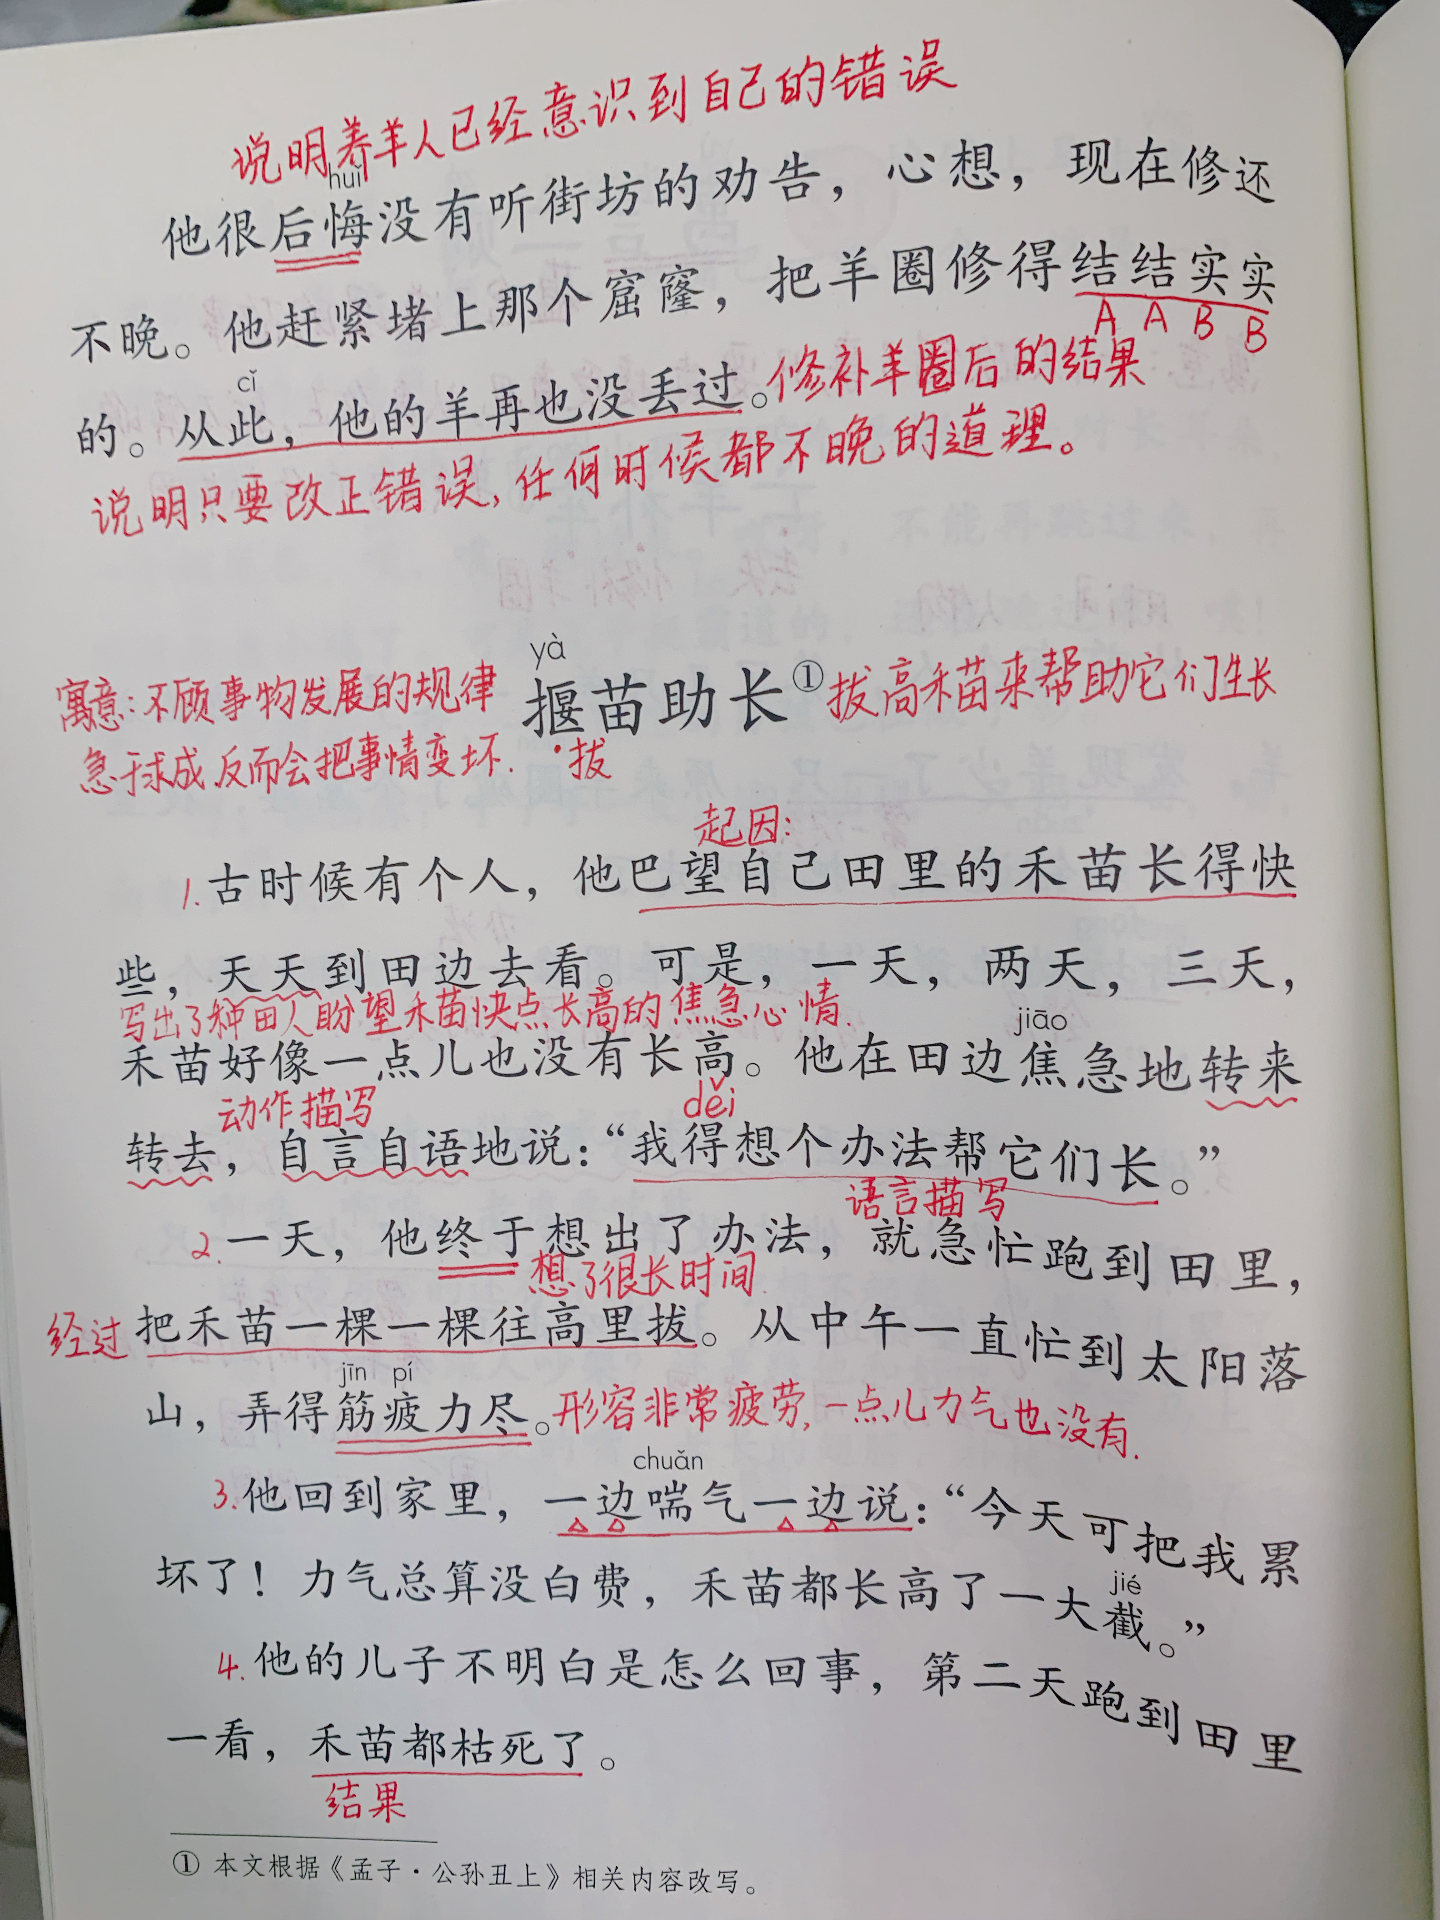 说明养羊人已经意识到自己的错误
huǐ
他很后悔没有听街坊的劝告，心想，现在修还
不晚。他赶紧堵上那个窟窿，把羊圈修得结结实实
A A B B
cǐ
的。从此，他的羊再也没丢过。修补羊圈后的结果
说明只要改正错误，任何时候都不晚的道理。
yà
寓意：不顾事物发展的规律
揠苗助长①拔高禾苗来帮助它们生长
急于求成反而会把事情变坏.
拔
起因：
1.古时候有个人，他巴望自己田里的禾苗长得快
些，天天到田边去看。可是，一天，两天，三天，
写出了种田人盼望禾苗快点长高的焦急心情.
jiāo
禾苗好像一点儿也没有长高。他在田边焦急地转来
动作描写
děi
转去，自言自语地说：“我得想个办法帮它们长。”
语言描写
2.一天，他终于想出了办法，就急忙跑到田里，
想了很长时间
经过 把禾苗一棵一棵往高里拔。从中午一直忙到太阳落
jīn pí
山，弄得筋疲力尽。形容非常疲劳，一点儿力气也没有.
chuǎn
3.他回到家里，一边喘气一边说：“今天可把我累
jié
坏了！力气总算没白费，禾苗都长高了一大截。”
4.他的儿子不明白是怎么回事，第二天跑到田里
一看，禾苗都枯死了。
结果
① 本文根据《孟子·公孙丑上》相关内容改写。